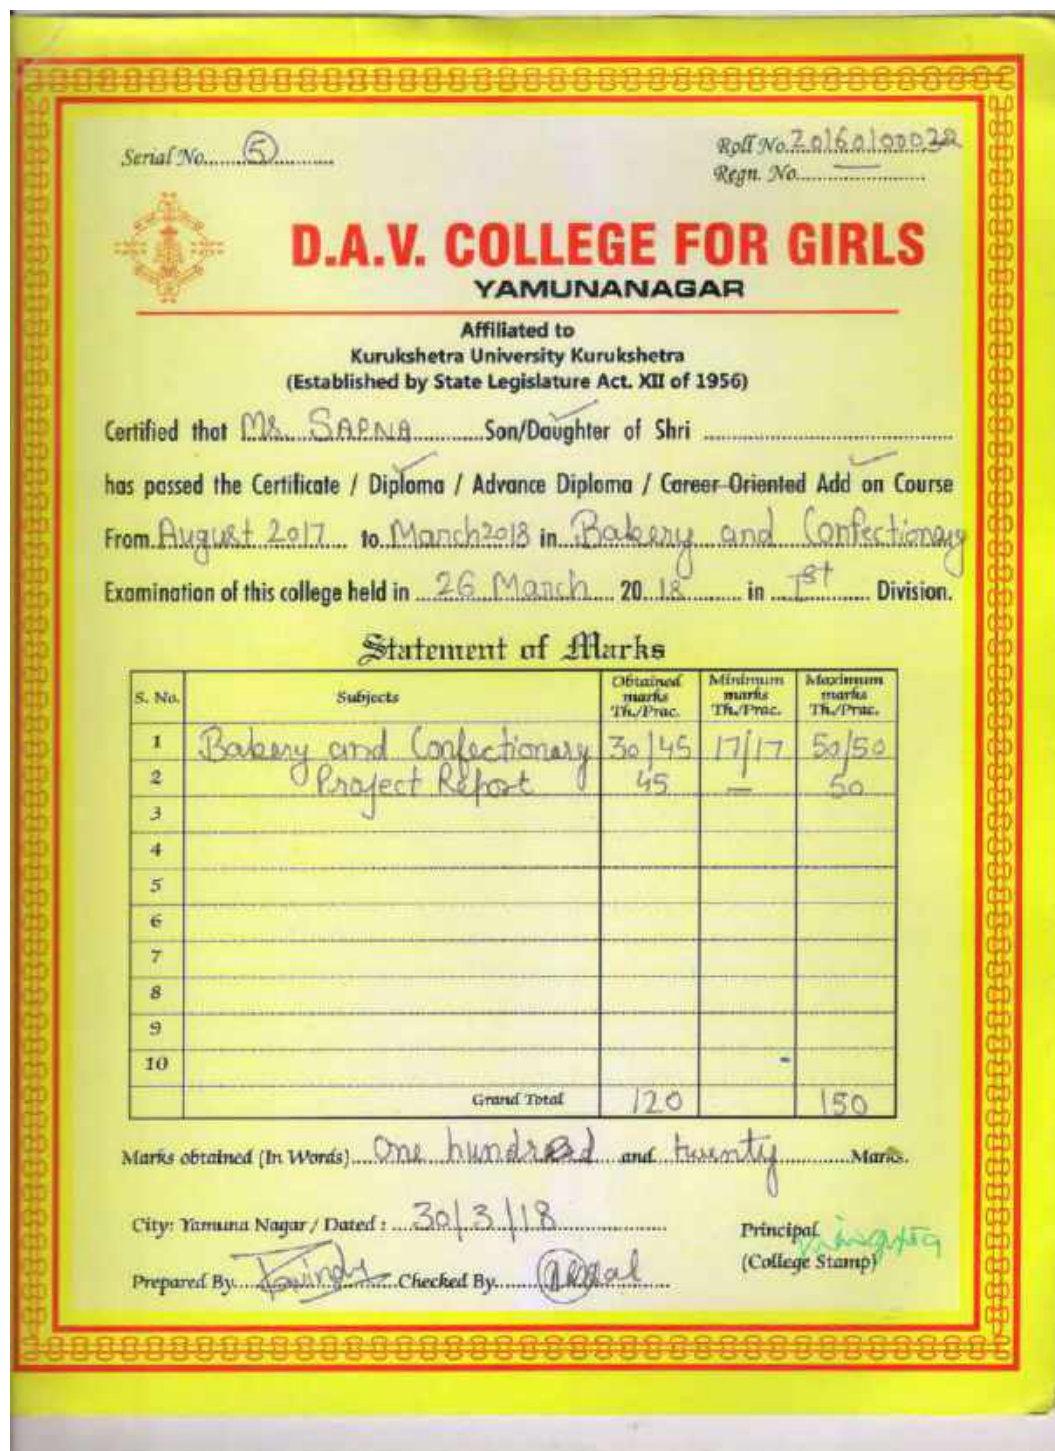 Serial No. 5
Roll No. 2016010003
Regn. No. —
D.A.V. COLLEGE FOR GIRLS
YAMUNANAGAR
Affiliated to
Kurukshetra University Kurukshetra
(Established by State Legislature Act. XII of 1956)
Certified that Ms. SAPNA Son/Daughter of Shri
has passed the Certificate / Diploma / Advance Diploma / Career Oriented Add on Course
From August 2017 to March 2018 in Bakery and Confectionary
Examination of this college held in 26 March 2018 in Ist Division.
Statement of Marks
S. No. Subjects Obtained marks Th./Prac. Minimum marks Th./Prac. Maximum marks Th./Prac.
1 Bakery and Confectionary 30/45 17/17 50/50
2 Project Report 45 — 50
3
4
5
6
7
8
9
10
Grand Total 120 150
Marks obtained (In Words) One hundred and twenty Marks.
City: Yamuna Nagar / Dated : 30/3/18
Principal
(College Stamp)
Prepared By Checked By